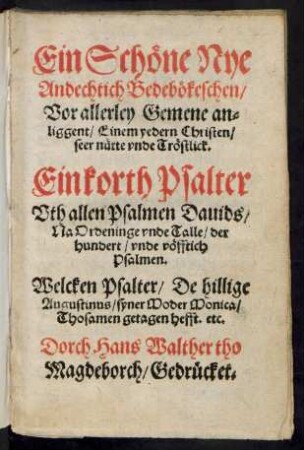 Ein Schöne Nye
Andechtich Bedebökeschen/
Vor allerley Gemene an-
liggent/ Einem yedern Christen/
seer nütte vnde Tröstlick.
Ein korth Psalter
Vth allen Psalmen Dauids/
Na Ordeninge vnde Talle/ der
hundert/ vnde vöfftich
Psalmen.
Welcken Psalter/ De hillige
Augustinus/ syner Moder Monica/
Thosamen getagen hefft. etc.
Dorch Hans Walther tho
Magdeborch/ Gedrücket.